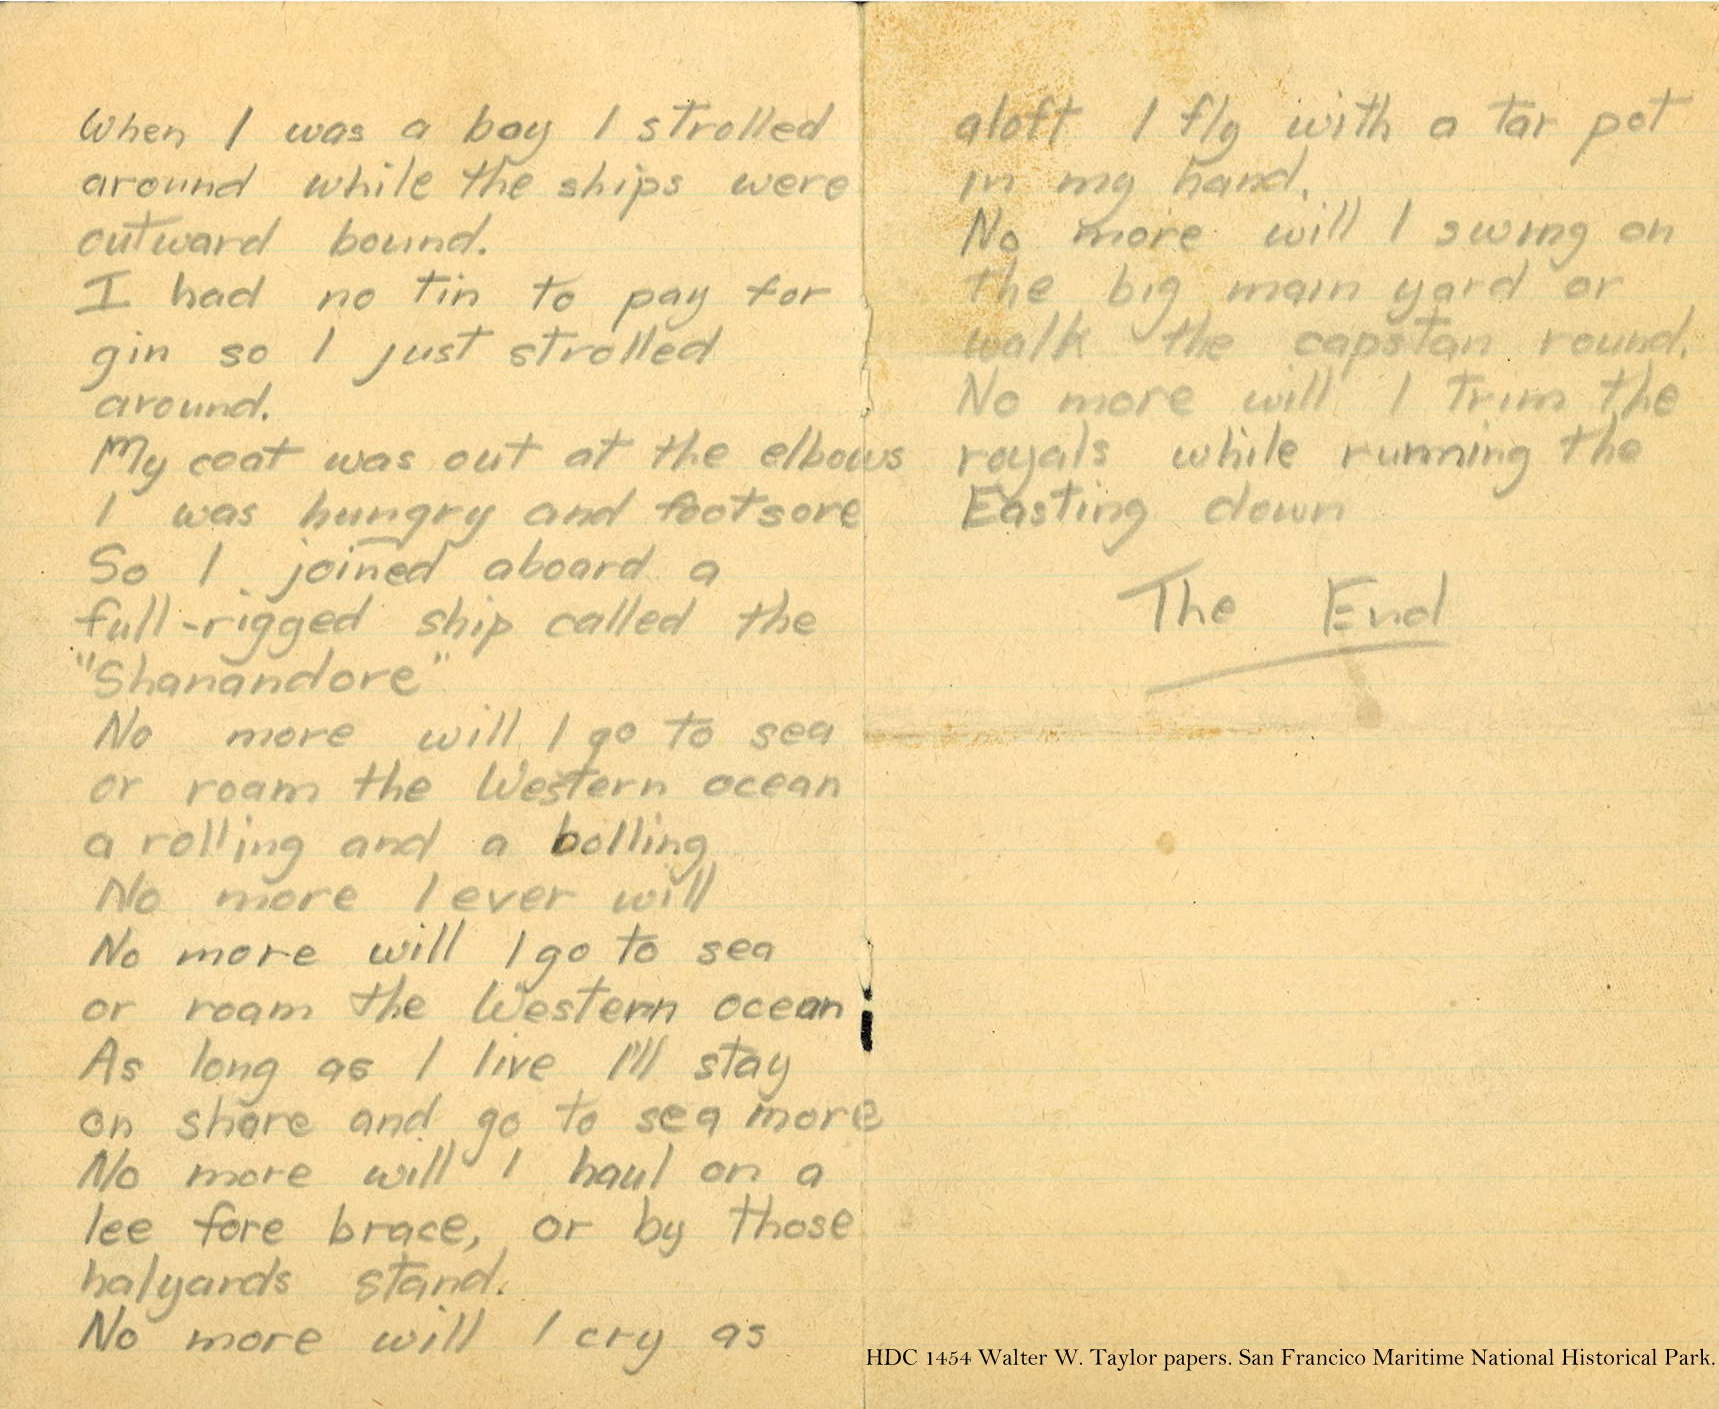 When I was a boy I strolled
around while the ships were
outward bound.
I had no tin to pay for
gin so I just strolled
around.
My coat was out at the elbows
I was hungry and footsore
So I joined aboard a
full-rigged ship called the
"Shanandore"
No more will I go to sea
or roam the Western ocean
a rolling and a bolling
No more I ever will
No more will I go to sea
or roam the Western ocean
As long as I live I'll stay
on shore and go to sea more
No more will I haul on a
lee fore brace, or by those
halyards stand.
No more will I cry as
aloft I fly with a tar pot
in my hand.
No more will I swing on
the big main yard or
walk the capstan round.
No more will I trim the
royals while running the
Easting down
The End
HDC 1454 Walter W. Taylor papers. San Francico Maritime National Historical Park.